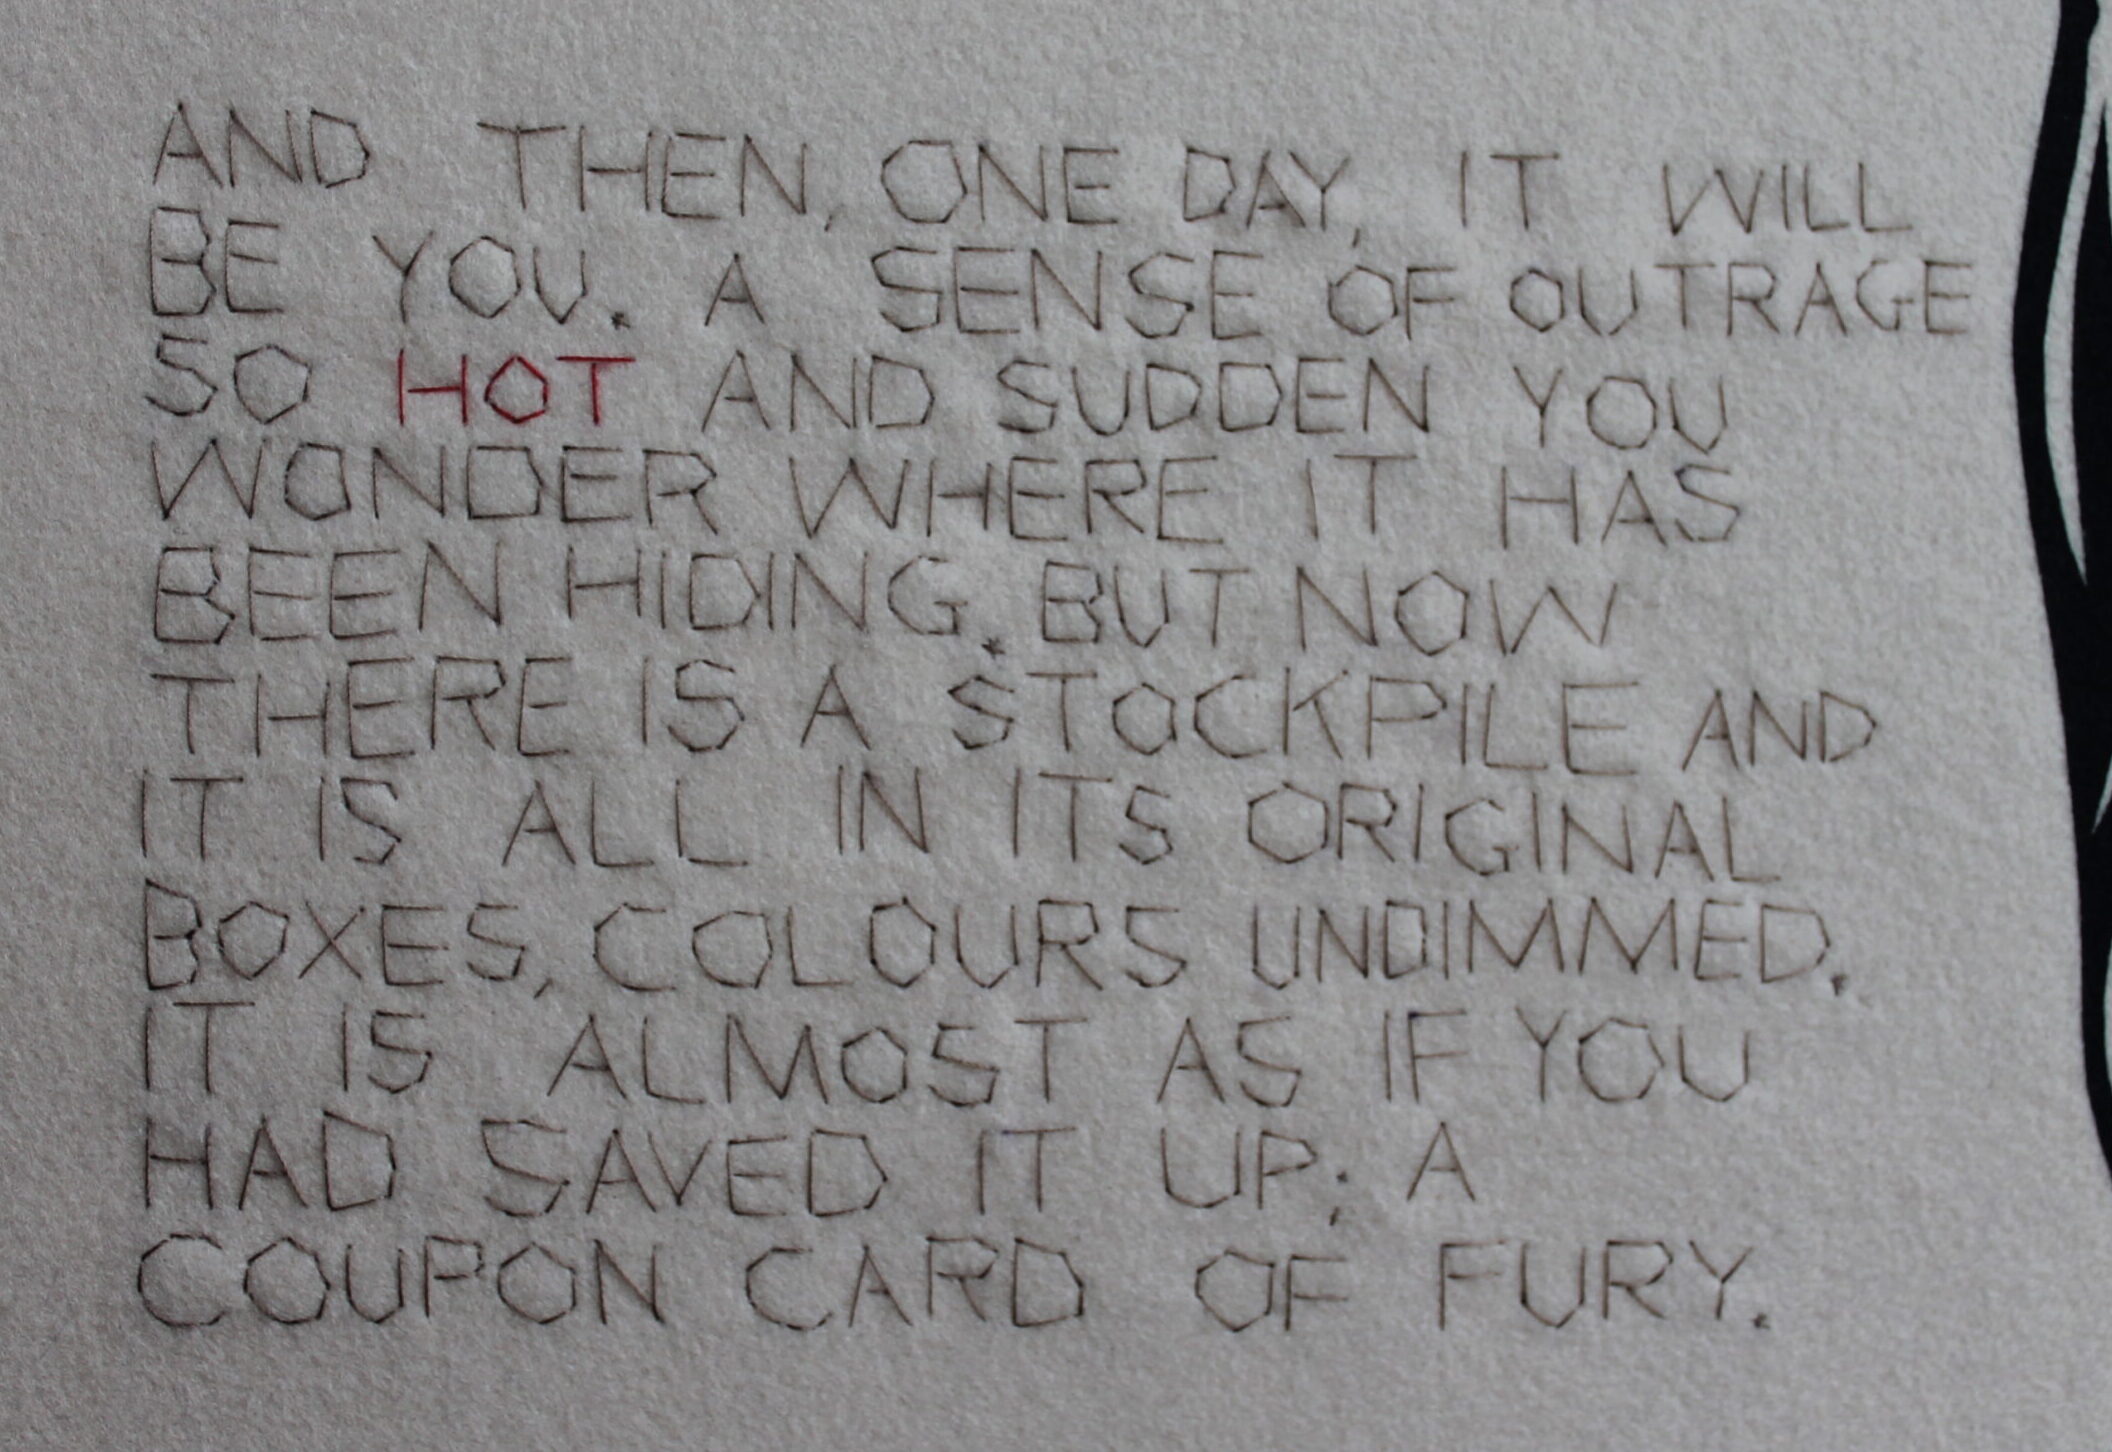 AND THEN, ONE DAY, IT WILL
BE YOU. A SENSE OF OUTRAGE
SO HOT AND SUDDEN YOU
WONDER WHERE IT HAS
BEEN HIDING. BUT NOW
THERE IS A STOCKPILE AND
IT IS ALL IN ITS ORIGINAL
BOXES, COLOURS UNDIMMED.
IT IS ALMOST AS IF YOU
HAD SAVED IT UP; A
COUPON CARD OF FURY.